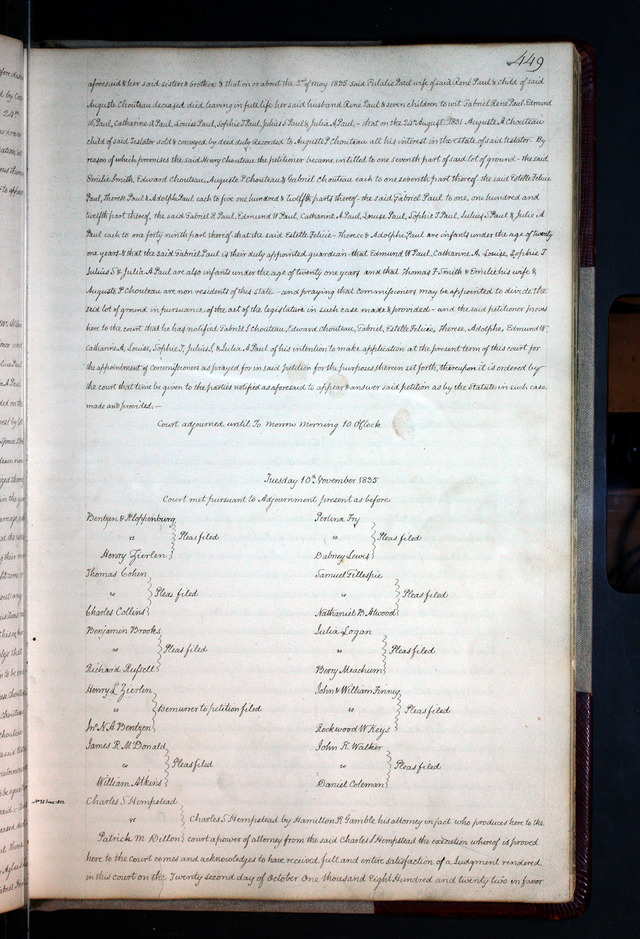 449
aforesaid & her said sisters & brothers & that on or about the 2nd of May 1835 said Eulalie Paul wife of said René Paul & child of said
Auguste Chouteau deceased died leaving in full life her said husband René Paul & seven children to wit Gabriel René Paul Edmund
W. Paul, Catharine A Paul, Louise Paul, Sophie T Paul, Julius S Paul & Julia A Paul, – that on the 24th August 1831 Auguste A Chouteau
child of said Testator sold & conveyed by deed duly Recorded to Auguste P Chouteau all his interest in the estate of said testator. By
reason of which promises the said Henry Chouteau the petitioner became intitled to one seventh part of said lot of ground – the said
Emilie Smith, Edward Chouteau, Auguste P Chouteau & Gabriel Chouteau each to one seventh part thereof – the said Estelle Felicie
Paul, Therese Paul & Adolphe Paul each to five one hundred & twelfth parts thereof – the said Gabriel Paul to one, one hundred and
twelfth part thereof, the said Gabriel R Paul, Edmund W Paul, Catharine A Paul, Louise Paul, Sophie T Paul, Julius S Paul & Julie A
Paul each to one forty ninth part thereof that the said Estelle Felicie – Therese & Adolphe Paul are infants under the age of twenty
one years & that the said Gabriel Paul is their duly appointed guardian – that Edmund W Paul, Catharine A, Louise, Sophie T
Julius S & Julia A Paul are also infants under the age of twenty one years and that Thomas F Smith & Emilie his wife &
Auguste P Chouteau are non residents of this state – and praying that Commissioners may be appointed to divide the
said lot of ground in pursuance of the act of the legislature in such case made & provided – and the said petitioner proves
here to the court that he has notified Gabriel S Chouteau, Edward Chouteau, Gabriel, Estelle Felicie, Therese, Adolphe, Edmund W.
Catharine A, Louise, Sophie T, Julius S, & Julia A Paul of his intention to make application at the present term of this court for
the appointment of commissioners as prayed for in said petition for the purposes therein set forth, thereupon it is ordered by
the court that time be given to the parties notified as aforesaid to appear & answer said petition as by the Statute in such case
made and provided. –
Court adjourned until To morrow morning 10 O'Clock
Tuesday 10th November 1835
Court met pursuant to Adjournment present as before
Bentzen & Kloppenburg
vs Pleas filed
Henry Zierlen
Perlina Fry
vs Pleas filed
Dabney Lewis
Thomas Cohen
vs Pleas filed
Charles Collins
Samuel Gillespie
vs Pleas filed
Nathaniel B. Atwood
Benjamin Brooks
vs Pleas filed
Richard Russell
Julia Logan
vs Pleas filed
Berry Meachum
Henry L Zierlen
vs Demurrer to petition filed
Jno N. A Bentzen
John & William Finney
vs Pleas filed
Rockwood W. Keys
James R. McDonald
vs Pleas filed
William Atkins
John R Walker
vs Pleas filed
Daniel Coleman
Charles S. Hempstead
vs Charles S. Hempstead by Hamilton R Gamble his attorney in fact who produces here to the
Patrick M Dillon court a power of attorney from the said Charles S Hempstead the execution whereof is proved
here to the court comes and acknowledges to have received full and entire satisfaction of a Judgment rendered
in this court on the Twenty second day of October One thousand Eight Hundred and twenty two in favor